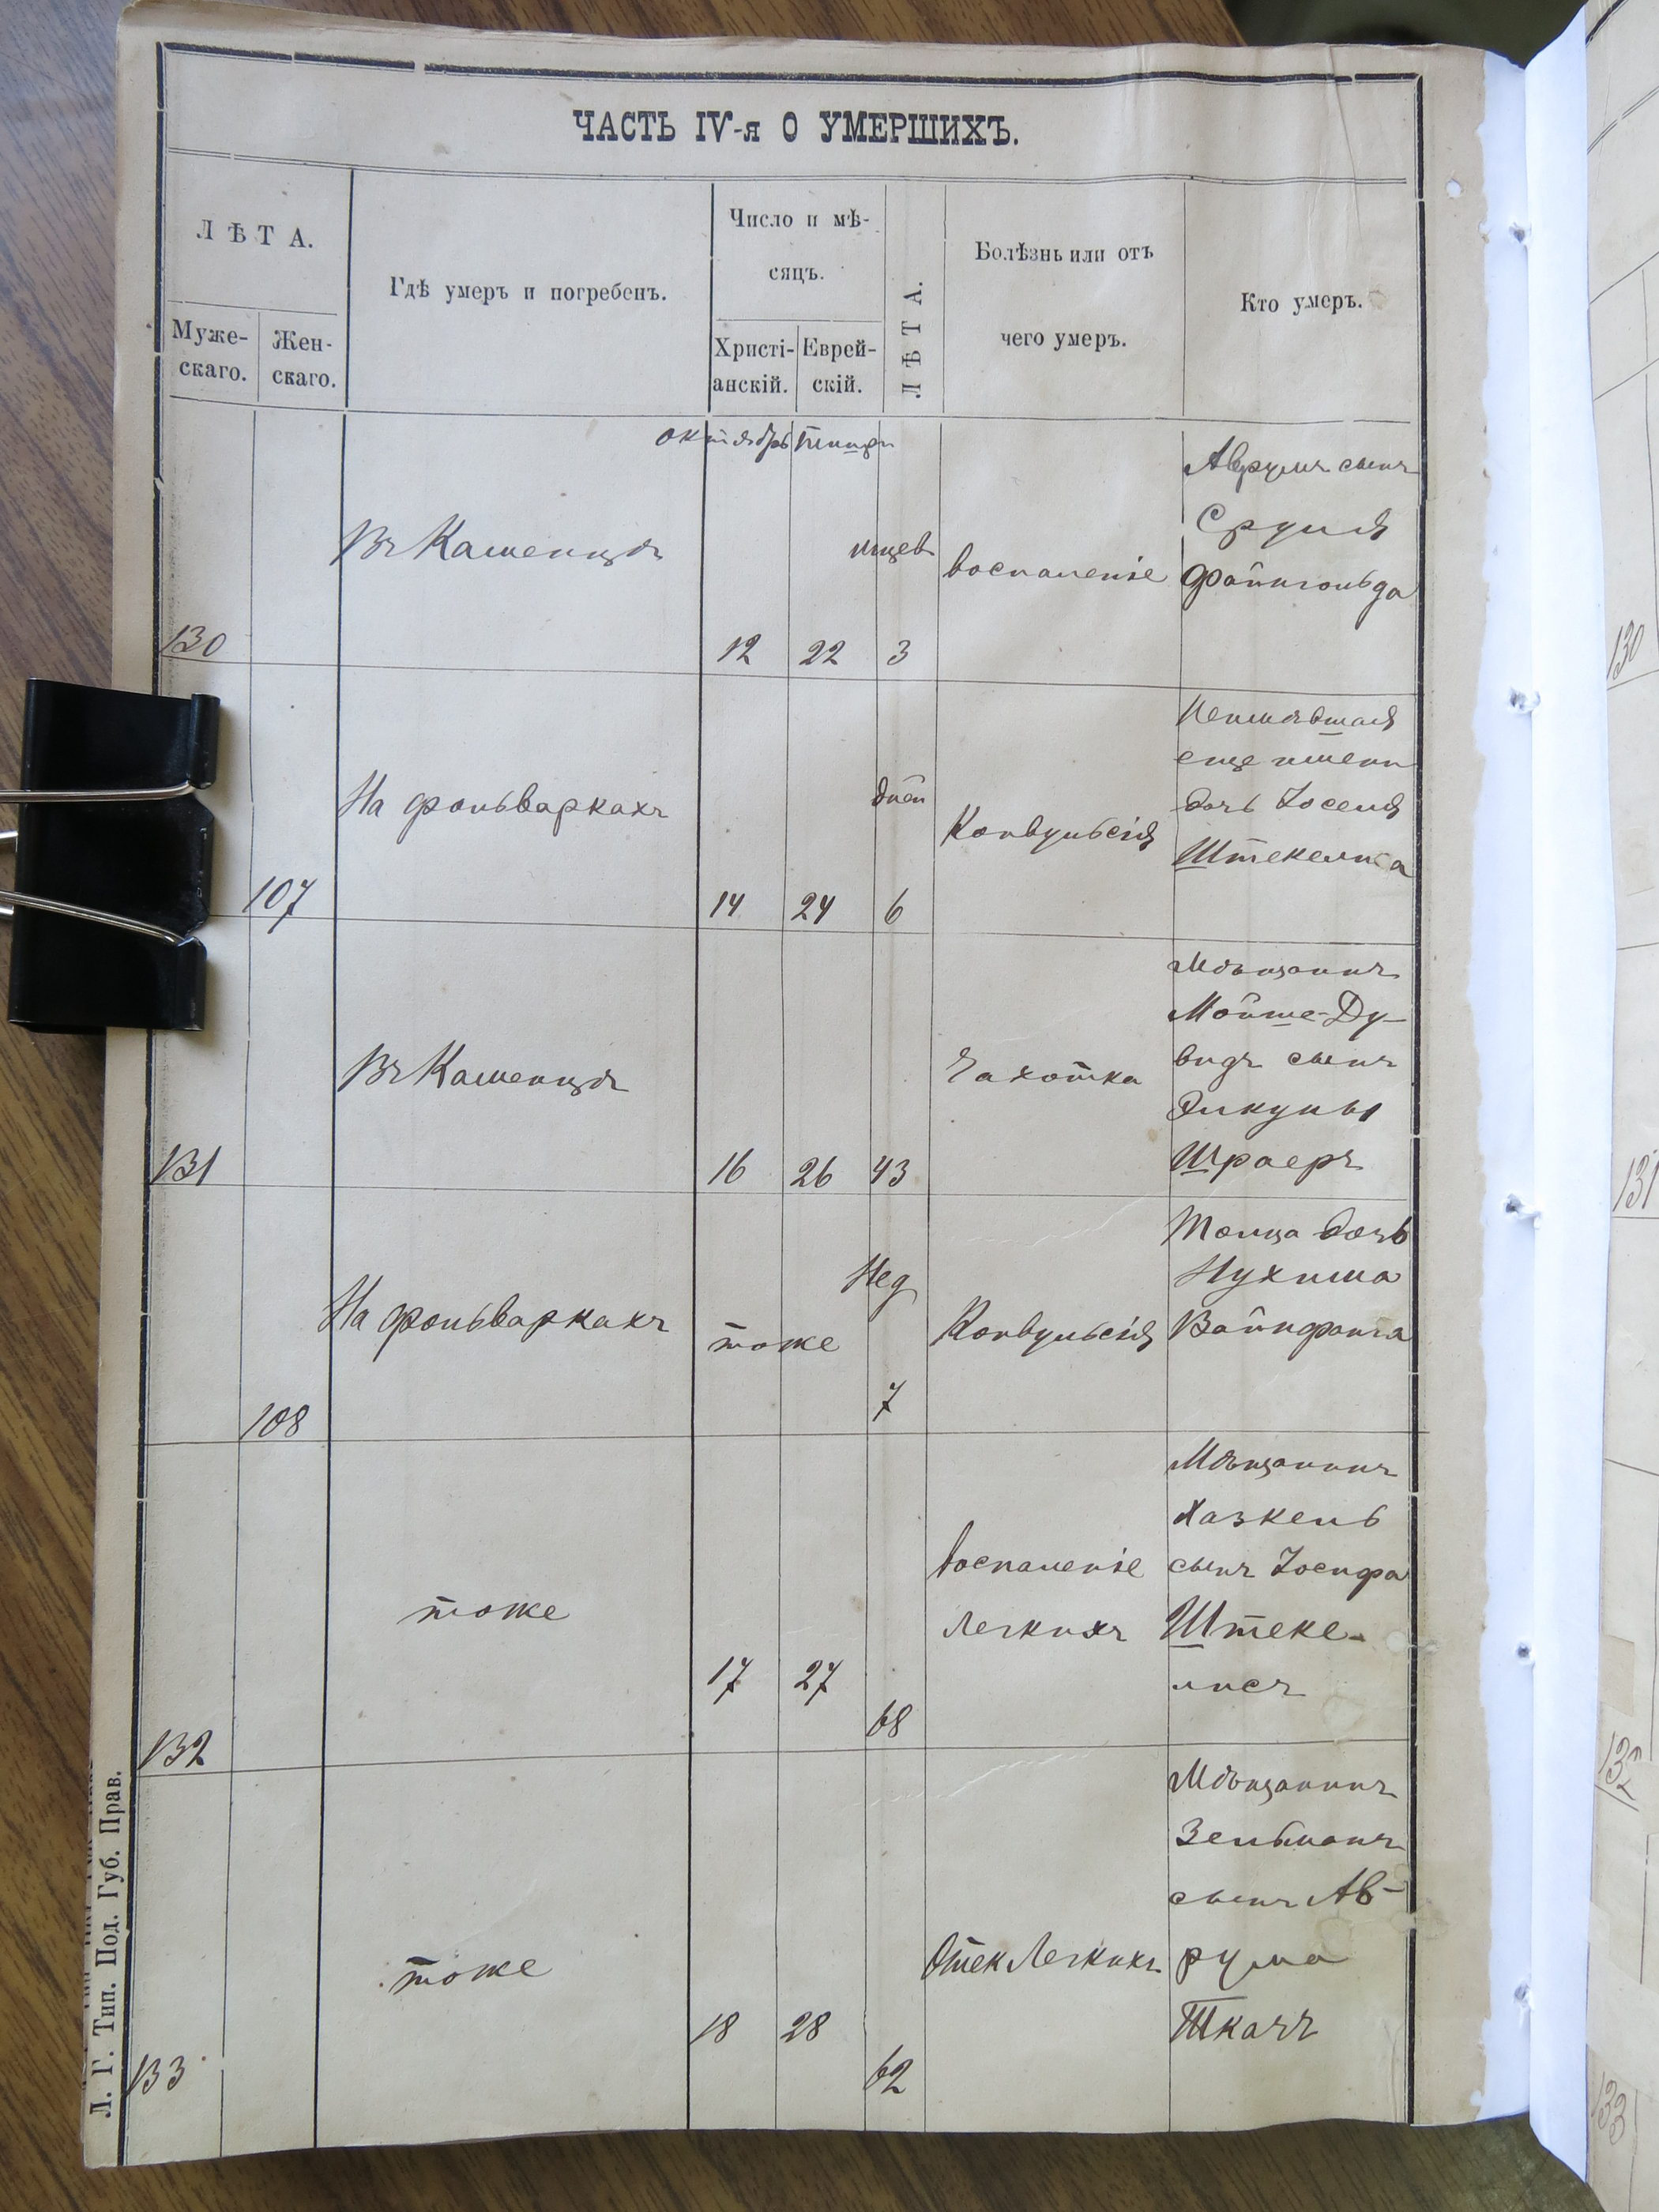 ЧАСТЬ IV-я О УМЕРШИХЪ.
ЛѢТА.
Муже-
скаго.
Жен-
скаго.
Гдѣ умеръ и погребенъ.
Число и мѣ-
сяцъ.
Христі-
анскій.
Еврей-
скій.
ЛѢТА.
Болѣзнь или отъ
чего умеръ.
Кто умеръ.
октябрь Тишри
130
Въ Каменцѣ
12
22
мцев
3
воспаленіе
Аврумъ сынъ
Сруля
Файнгольда
107
На фольваркахъ
14
24
дней
6
Конвульсія
Неимѣвшая
еще имени
дочь Іоселя
Штекелиса
131
Въ Каменцѣ
16
26
43
Чахотка
Мѣщанинъ
Мойше-Ду-
видъ сынъ
Элкуны
Шраеръ
108
На фольваркахъ
тоже
Нед
7
Конвульсія
дочь
Нухима
132
тоже
17
27
68
воспаленіе
легкихъ
Мѣщанинъ
Хазкель
сынъ Іосифа
Штеке-
лисъ
133
тоже
18
28
62
Отек легкихъ
Мѣщанинъ
Зельманъ
сынъ Ав-
рума
Ткачъ
Л. Г. Тип. Под. Губ. Прав.
130
131
132
133